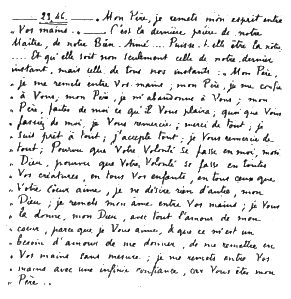 23,46. — « Mon Père, je remets mon esprit entre
« Vos mains » — C'est la dernière prière de notre
Maître, de notre Bien-Aimé... Puisse-t-elle être la nôtre
... Et qu'elle soit non seulement celle de notre dernier
instant, mais celle de tous nos instants : « Mon Père,
« je me remets entre Vos mains ; mon Père, je me confie
« à Vous, mon Père, je m'abandonne à Vous ; mon
« Père, faites de moi ce qu'il Vous plaira ; quoi que Vous
« fassiez de moi, je Vous remercie ; merci de tout ; je
« suis prêt à tout ; j'accepte tout ; je Vous remercie de
« tout ; Pourvu que Votre Volonté se fasse en moi, mon
« Dieu, pourvu que Votre Volonté se fasse en toutes
« Vos créatures, en tous Vos enfants, en tous ceux que
« Votre Cœur aime, je ne désire rien d'autre, mon
« Dieu ; je remets mon âme entre Vos mains ; je Vous
« la donne, mon Dieu, avec tout l'amour de mon
« cœur, parce que je Vous aime, & que ce m'est un
« besoin d'amour de me donner, de me remettre en
« Vos mains sans mesure ; je me remets entre Vos
« mains avec une infinie confiance, car Vous êtes mon
« Père...